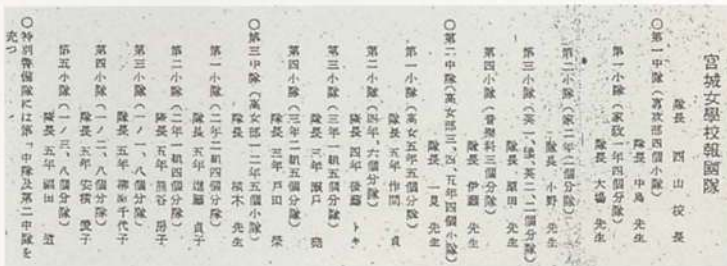 宮城女學校報國隊
隊長 西山校長
○第一中隊(高攻部四個小隊)
隊長 中島 先生
第一小隊(家政一年四個分隊)
隊長 大橋 先生
第二小隊(家二年二個分隊)
隊長 小野 先生
第三小隊(英一、後、英二、二個分隊)
隊長 原田 先生
第四小隊(音樂科三個分隊)
隊長 伊藤 先生
○第二中隊(高女部三、四、五年四個小隊)
隊長 一見 先生
第一小隊(高女五年五個分隊)
隊長 五年 作間 貞
第二小隊(四年、六個分隊)
隊長 四年 後藤 トキ
第三小隊(三年一組五個分隊)
隊長 三年 瀬戸
第四小隊(三年二組五個分隊)
隊長 三年 戸田 榮
○第三中隊(高女部一二年五個小隊)
隊長 植木 先生
第一小隊(二年二組四個分隊)
隊長 五年 進藤 貞子
第二小隊(二年一組四個分隊)
隊長 五年 熊谷 房子
第三小隊(一ノ一、八個分隊)
隊長 五年 千代子
第四小隊(一ノ二、八個分隊)
隊長 五年 安積 愛子
第五小隊(一ノ三、八個分隊)
隊長 五年 福田
○特別警備隊には第一中隊及第二中隊を
充つ